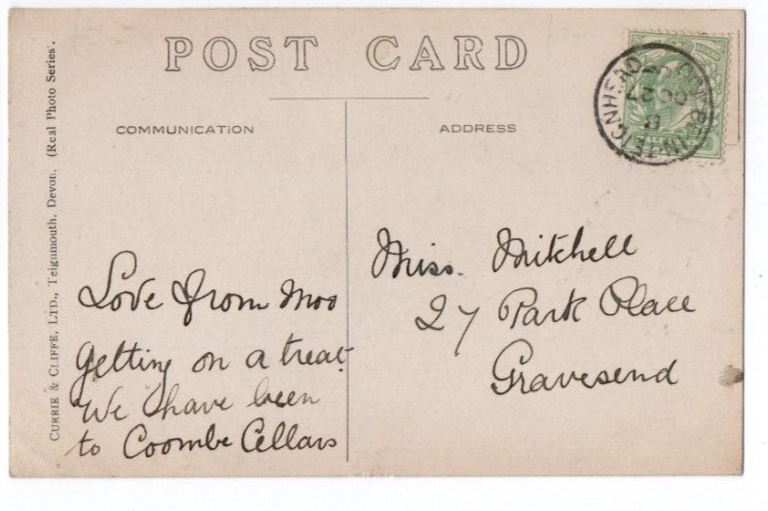 POST CARD
COMMUNICATION
ADDRESS
CURRIE & CLIFFE, LTD., Teignmouth, Devon. (Real Photo Series).
Love from Moo
getting on a treat.
We have been
to Coombe Cellars
Miss. Mitchell
27 Park Place
Gravesend